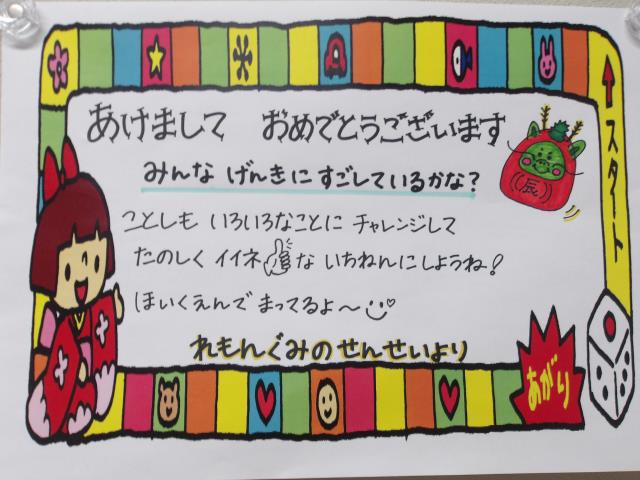 あけまして おめでとうございます
みんな げんきに すごしているかな?
ことしも いろいろなことに チャレンジして
たのしく イイネ な いちねんにしようね!
ほいくえんで まってるよ〜
れもんぐみの せんせいより
↑スタート
辰
あがり